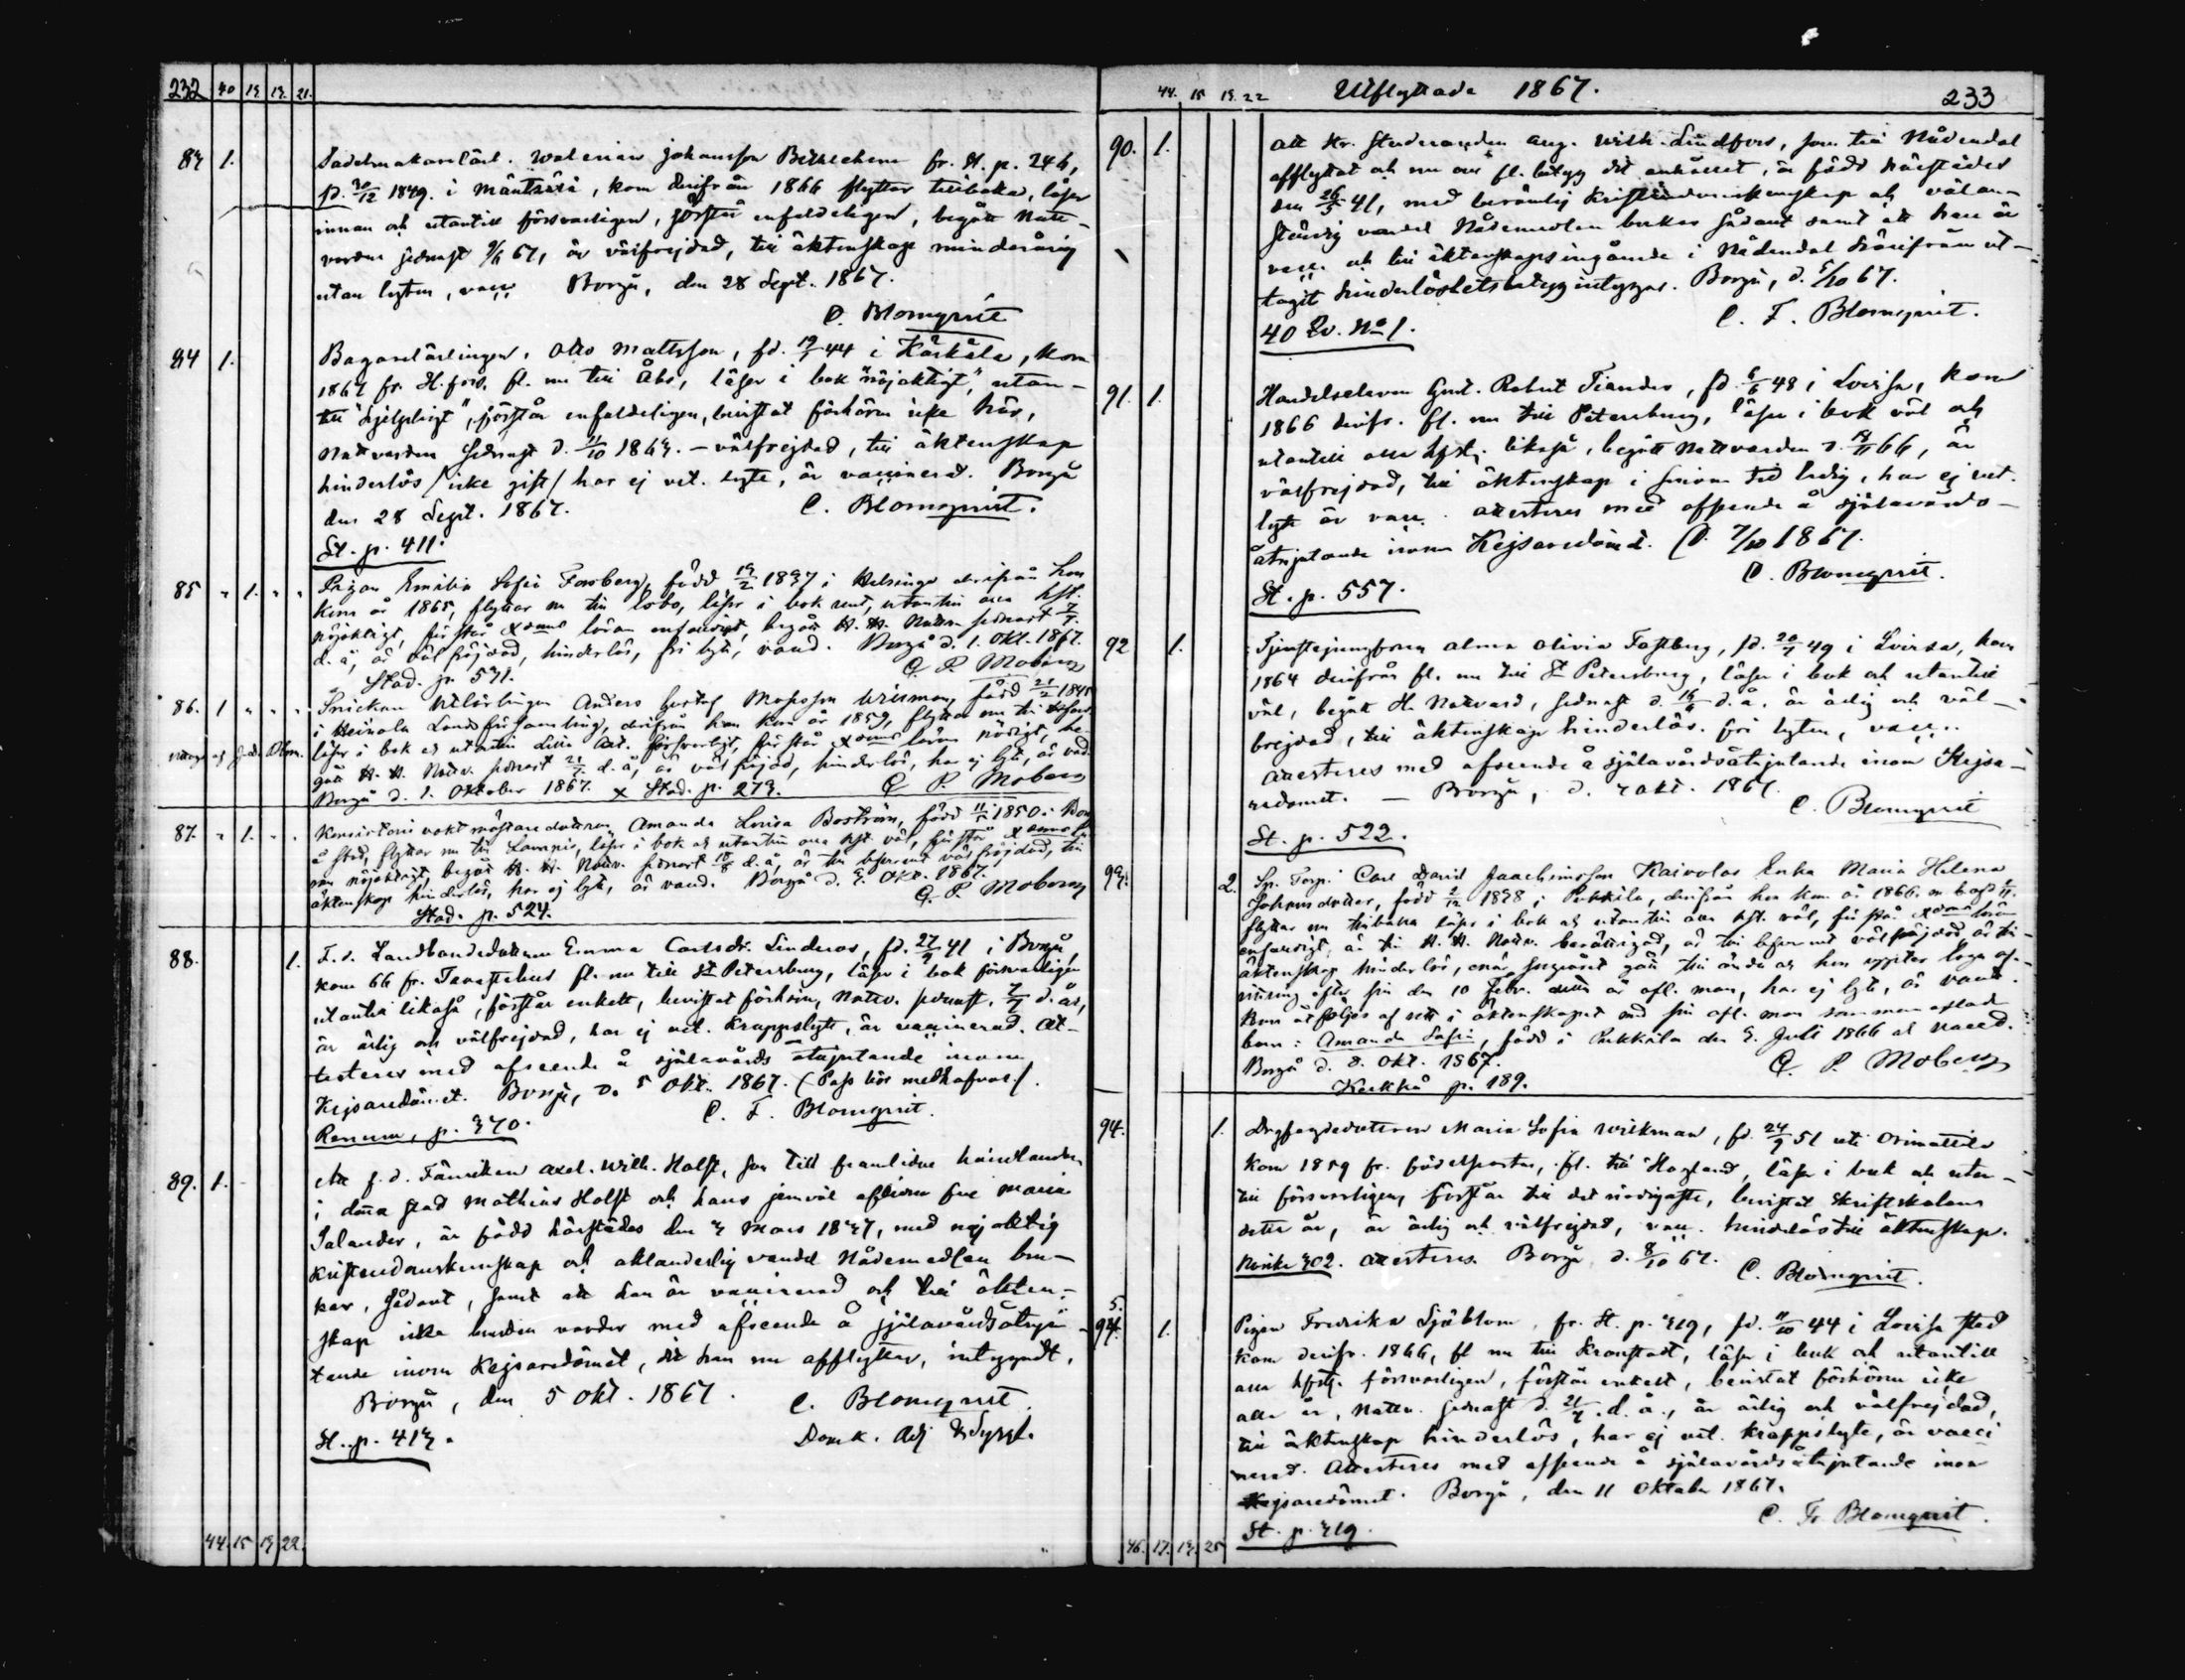 232 40 13 13 21.
83 1. Sadelmakarelärl. Walerian Johansson Betlehem fr. St. p. 246,
fd. 30/12 1849. i Mäntsälä, kom derifrån 1866 flyttar tillbaka, läser
innan och utantill försvarligen, förstår enfaldeligen, begått Natt-
varden sednast 9/6 67, är välfrejdad, till äktenskap minderårig
utan lyten, vacc. Borgå, den 28 Sept. 1867.
C. Blomqvist
84 1. Bagarelärlingen, Otto Mattsson, fd. 19/1 44 i Kärkölä, kom
1867 fr. H.fors. fl. nu till Åbo, läser i bok "nöjaktigt", utan-
till "hjelpligt", förstår enfaldeligen, bevistat förhören icke här,
Nattvarden sednast d. 11/10 1863. – välfrejdad, till äktenskap
hinderlös /icke gift/ har ej vet. lyte, är vaccinerad. Borgå
den 28 Sept. 1867. C. Blomqvist.
St. p. 411.
85 " 1. " " Pigan Emilia Sofia Forsberg, född 19/2 1837 i Helsinge derifrån hon
kom år 1865, flyttar nu till Esbo, läser i bok rent, utantill alla hst.
nöjaktigt, förstår Xdoms läran enfaldigt, begår H. H. Nattv. sednast 7/7
d. å, är väl frejdad, hinderlös, fri lyte, vaccd. Borgå d. 1. Okt. 1867.
Stad. p. 531. C. P. Moberg
86. 1 " " " Snickare Utlärlingen Anders Gustaf Mosesson Willman, född 21/2 1845
i Heinola Landsförsamling, derifrån han kom år 1859, flyttar nu till H:fors,
läser i bok och utantill Lilla Cat. försvarligt, förstår Xdoms läran nödigt, be-
gått H. H. Nattv. sednast 21/7 d. å, är väl frejdad, hinderlös, har ej lyte, är vacd.
Borgå d. 1. Oktober 1867. X Stad. p. 273. C. P. Moberg
87. " 1. " " Konsistorii vaktmästaredottren Amanda Lovisa Boström, född 11/5 1850. i Borg
å stad, flyttar nu till Lovisa, läser i bok och utantill alla hst. väl, förstår Xdoms lä
ran nöjaktigt, begår H. H. Nattv. sednast 18/8 d. å, är till beprömd väl frejdad, till
äktenskap hinderlös, har ej lyte, är vaccd. Borgå d. 3. Okt. 1867.
Stad. p. 524. C. P. Moberg
88. 1. F. d. Landbondedottren Emma Carlsdr. Linderos, fd. 27/9 41 i Borgå,
kom 66 fr. Tavastehus fl. nu till St Petersburg, läser i bok försvarligen
utantill likaså, förstår enkelt, bevistat förhören, Nattv. sednast 7/7 d. år,
är ärlig och välfrejdad, har ej vet. kroppslyte, är vaccinerad. At-
testeras med afseende å själavårds åtnjutande inom
Kejsaredömet. Borgå, d. 5 Okt. 1867. (Pass bör medhafvas/.
Rennum, p. 370. C. F. Blomqvist.
89. 1. Att f. d. Fänriken Axel. Wilh. Holst, son till framlidne handlanden
i dma stad Mathias Holst och hans jemväl aflidna fru Maria
Salander, är född härstädes den 3 Mars 1837, med nöjaktig
kristendomskunskap och oklanderlig vandel Nådemedlen bru-
kar, sådant, samt att han är vaccinerad och till äkten-
skap icke bunden varder med afseende å själavårdsåtnju-
tande inom Kejsaredömet, dit han nu afflyttar, intygadt,
Borgå, den 5 Okt. 1867. C. Blomqvist.
St. p. 413. Domk. Adj
44. 15 13 22.
44. 15 13. 22 Utflyttade 1867. 233
90. 1. Att Hr. Studeranden Aug. Wilh. Lindfors, som till Nådendal
afflyttat och nu om fl. betyg dit anhållit, är född härstädes
den 26/5 41, med berömlig kristendomskunskap och välan-
ständig vandel Nådemedlen brukar sådant samt att han är
vacc. och till äktenskapsingående i Nådendal härifrån ut-
tagit hinderlöshetsbetyg intygas. Borgå, d. 5/10 67.
40 Qv. No 1. C. F. Blomqvist.
91. 1. Handelseleven Gust. Robert Tiander, fd. 6/6 48 i Lovisa, kom
1866 derifr. fl. nu till Petersburg, läser i bok väl och
utantill alla hfst. likaså, begått Nattvarden d. 18/11 66, är
välfrejdad, till äktenskap i sinom tid ledig, har ej vet.
lyte är vacc. attesteras med afseende å själavårds-
åtnjutande inom Kejsaredömet. d. 7/10 1867.
St. p. 557. C. Blomqvist.
92 1. Tjenstejungfrun Alma Olivia Fastberg, fd. 20/7 49 i Lovisa, kom
1864 derifrån fl. nu till St Petersburg, läser i bok och utantill
väl, begått H. Nattvard, sednast d. 16/6 d. å. är ärlig och väl-
frejdad, till äktenskap hinderlös. fri lyten, vacc..
attesteras med afseende å själavårdsåtnjutande inom Kejsa-
redömet. – Borgå, d. 7 Okt. 1867.
St. p. 522. C. Blomqvist
93. 2. Sp. Torp. Carl David Joachimsson Kaivolas Enka Maria Helena
Johansdotter, född 2/12 1838 i Pukkila, derifrån hon kom år 1866.
flyttar nu tillbaka läser i bok och utantill alla hst. väl, förstår Xdoms läran
enfaldigt, är till H. H. Nattv. berättigad, är till beprömd väl frejdad är till
äktenskap hinderlös, enär sorgeåret gått till ända och hon uppter laga af-
vittring efter sin den 10 Febr. år afl. man, har ej lyte, är vaccd.
Hon åtföljes af sitt i äktenskapet med sin afl. man sammanaflade
barn: Amanda Sofia, född i Pukkila den 3. Juli 1866 och vaccd.
Borgå d. 8. Okt. 1867. C. P. Moberg
p. 189.
94. 1. Dagfogdedottren Maria Sofia Wickman, fd. 24/9 51 uti Orimattila
kom 1859 fr. födelseorten, fl. till Hogland, läser i bok och utan-
till försvarligen, förstår till det nödigaste, bevistat skriftskolan
detta år, är ärlig och välfrejdad, vacc. hinderlös till äktenskap.
302. attesteras. Borgå d. 8/10 67. C. Blomqvist.
5.
94. 1. Pigan Fredrika Sjöblom, fr. St. p. 319, fd. 11/10 44 i Lovisa stad
kom derifr. 1866, fl nu till Kronstadt, läser i bok och utantill
alla hfst. försvarligen, förstår enkelt, bevistat förhören icke
alla år, Nattv. sednast d. 21/7. d. å., är ärlig och välfrejdad,
till äktenskap hinderlös, har ej vet. kroppslyte, är vacci
nerad. Attesteras med afseende å själavårdsåtnjutande inom
Kejsaredömet. Borgå, den 11 Oktober 1867.
St. p. 319. C. F. Blomqvist.
46. 17. 13. 25